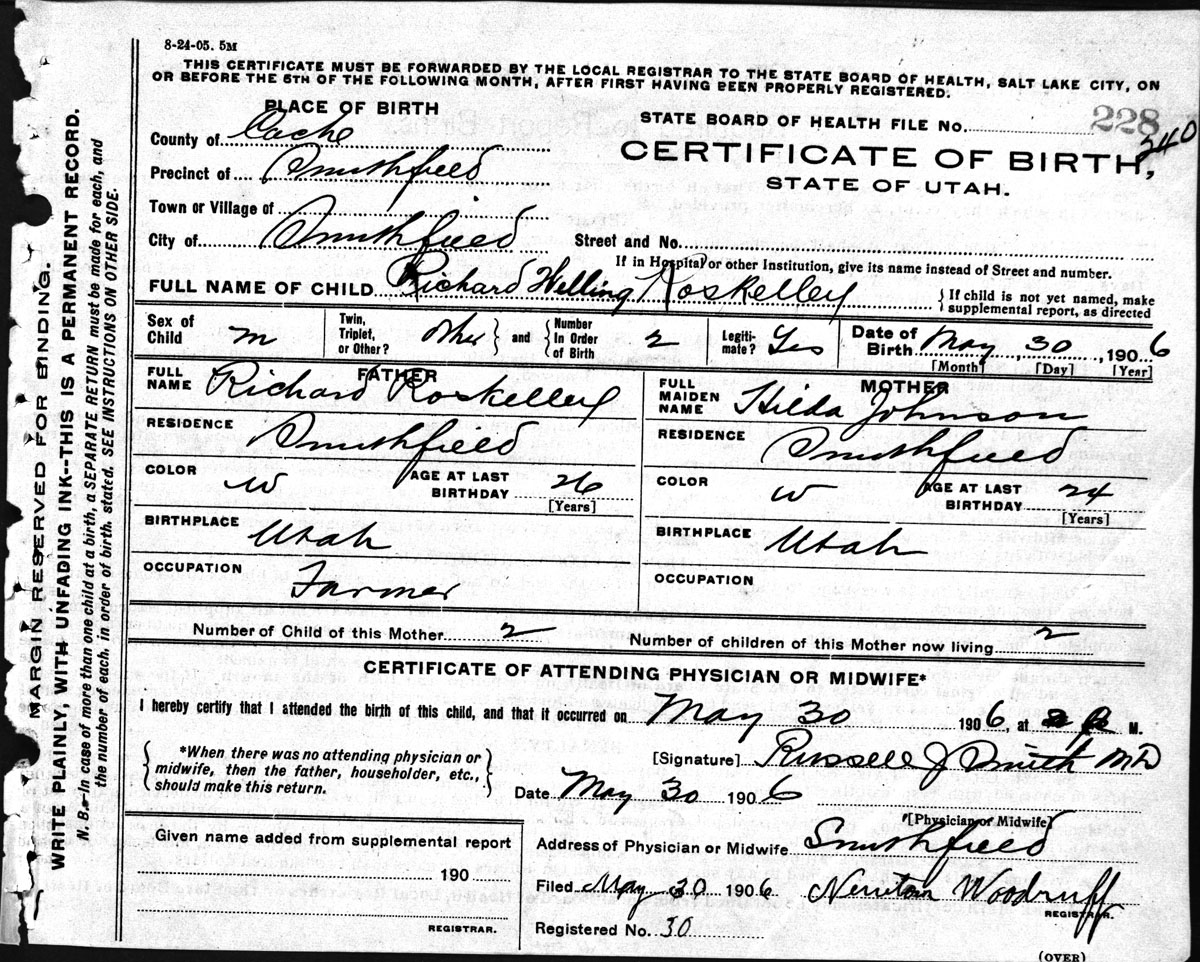 8-24-05. 5M
THIS CERTIFICATE MUST BE FORWARDED BY THE LOCAL REGISTRAR TO THE STATE BOARD OF HEALTH, SALT LAKE CITY, ON
OR BEFORE THE 5TH OF THE FOLLOWING MONTH, AFTER FIRST HAVING BEEN PROPERLY REGISTERED.
PLACE OF BIRTH
County of Cache
Precinct of Smithfield
Town or Village of
City of Smithfield
STATE BOARD OF HEALTH FILE No. 228
340
CERTIFICATE OF BIRTH,
STATE OF UTAH.
Street and No.
If in Hospital or other Institution, give its name instead of Street and number.
FULL NAME OF CHILD Richard Welling Roskelley
If child is not yet named, make
supplemental report, as directed
Sex of Child m
Twin, Triplet, or Other? other and Number In Order of Birth 2
Legitimate? Yes
Date of Birth May 30, 1906
[Month] [Day] [Year]
FATHER
FULL NAME Richard Roskelley
RESIDENCE Smithfield
COLOR W AGE AT LAST BIRTHDAY 26
[Years]
BIRTHPLACE Utah
OCCUPATION Farmer
MOTHER
FULL MAIDEN NAME Hilda Johnson
RESIDENCE Smithfield
COLOR W AGE AT LAST BIRTHDAY 24
[Years]
BIRTHPLACE Utah
OCCUPATION
Number of Child of this Mother 2 Number of children of this Mother now living 2
CERTIFICATE OF ATTENDING PHYSICIAN OR MIDWIFE*
I hereby certify that I attended the birth of this child, and that it occurred on May 30 1906, at M.
*When there was no attending physician or
midwife, then the father, householder, etc.,
should make this return.
[Signature] Russell J Smith MD
Date May 30 1906
[Physician or Midwife]
Given name added from supplemental report
190
REGISTRAR.
Address of Physician or Midwife Smithfield
Filed May 30 1906 Newton Woodruff
REGISTRAR.
Registered No. 30
(OVER)
MARGIN RESERVED FOR BINDING.
WRITE PLAINLY, WITH UNFADING INK--THIS IS A PERMANENT RECORD.
N. B.--In case of more than one child at a birth, a SEPARATE RETURN must be made for each, and
the number of each, in order of birth, stated. SEE INSTRUCTIONS ON OTHER SIDE.